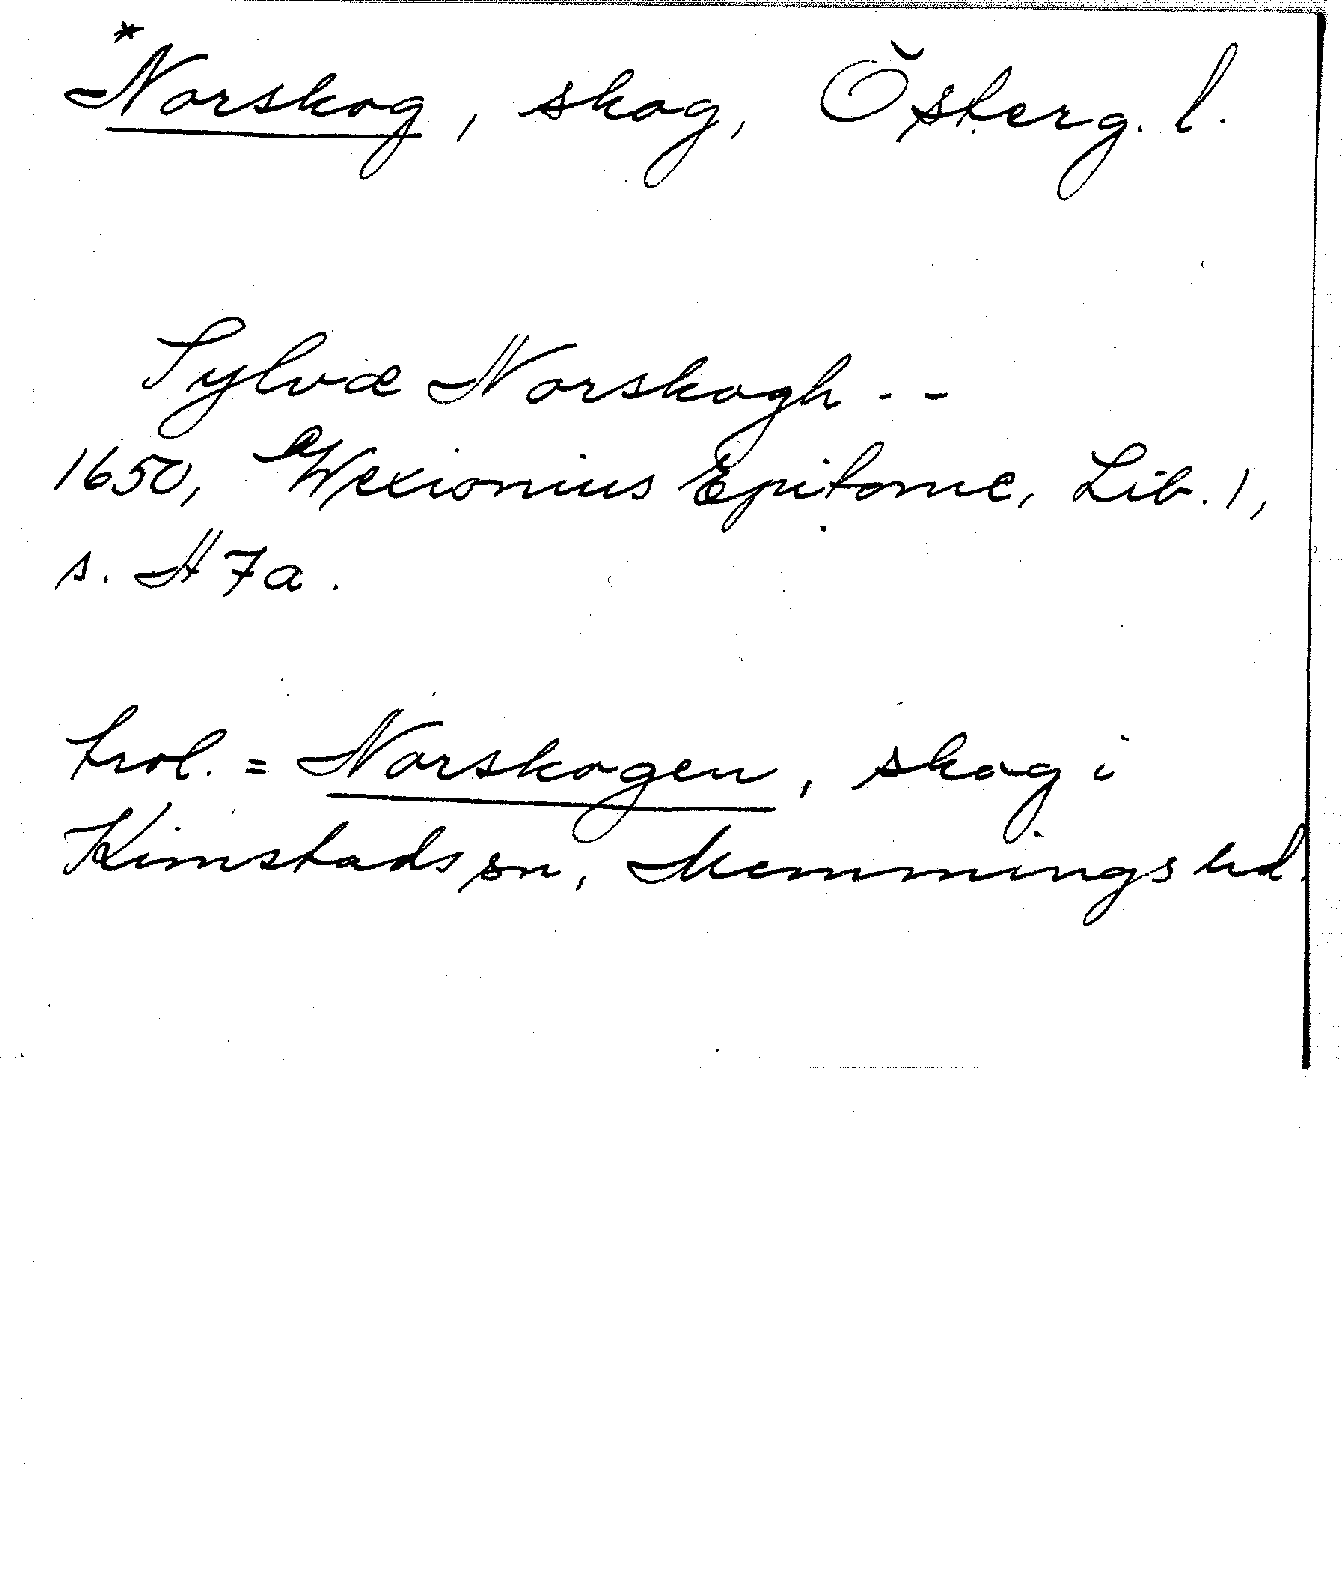 *Norskog, skog, Österg. l.
Sylvæ Norskogh - -
1650, Wexionius Epitome, Lib. 1,
s. H 7a.
trol. = Norskogen, skog i
Kimstads sn, Memmings hd.